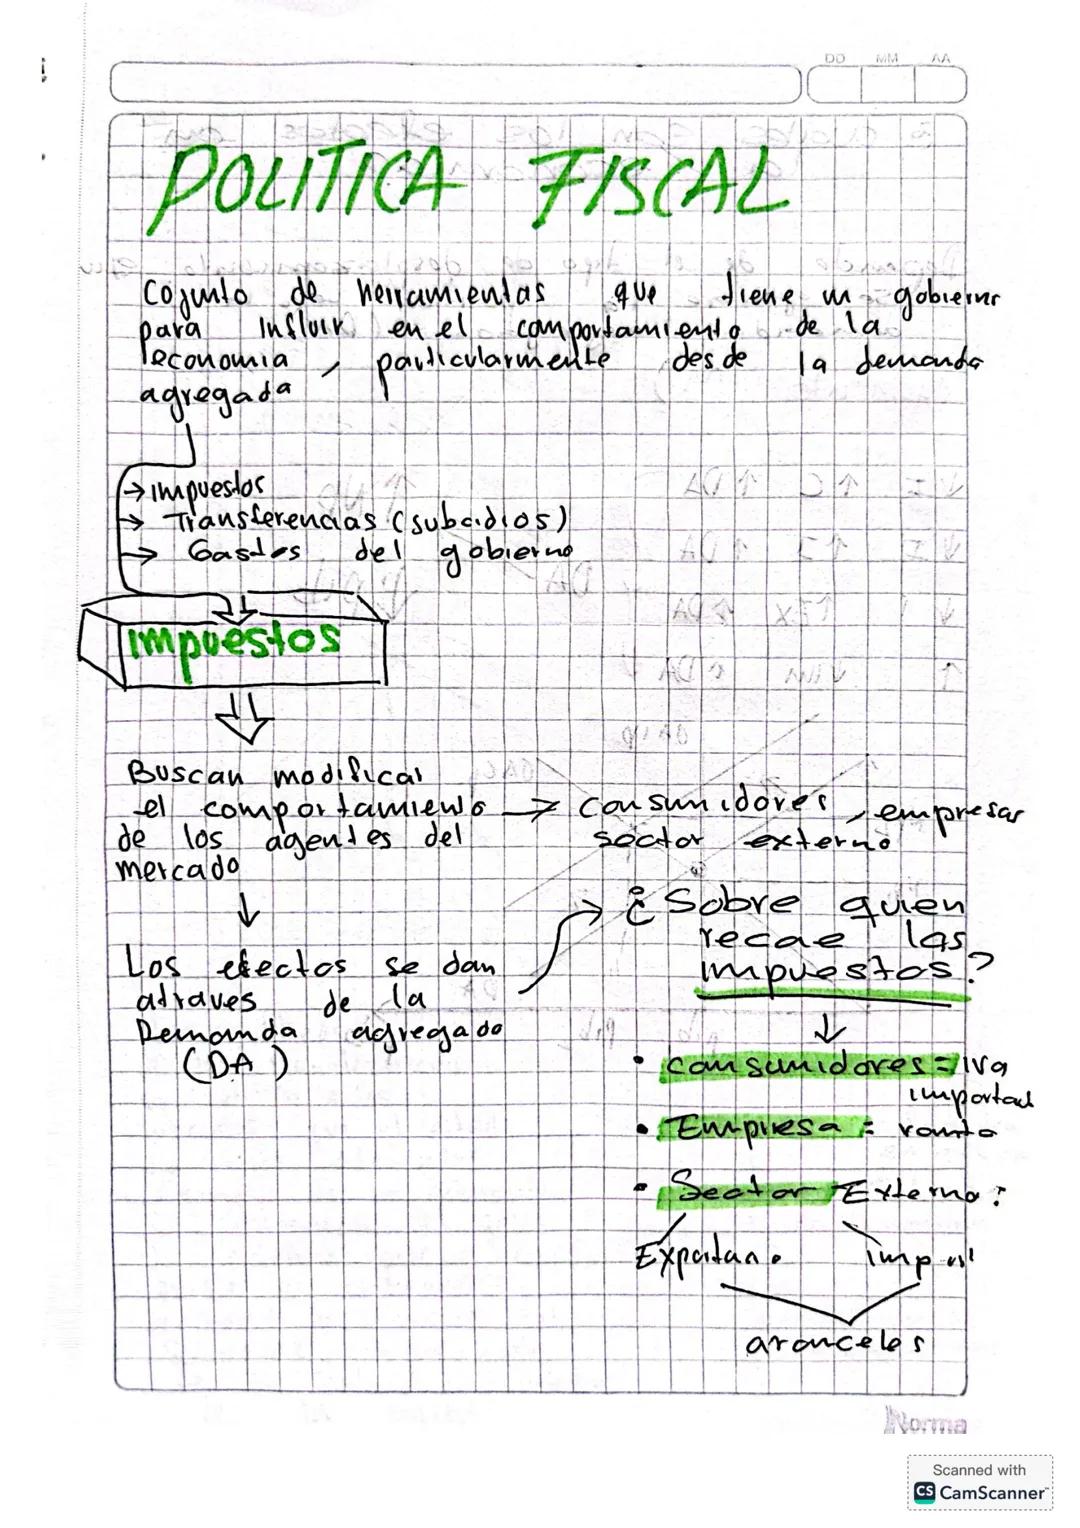 DD MM AA
POLITICA FISCAL
Cojunto de herramientas que tiene un gobierno
para Influir en el comportamiento de la
economia, particularmente desde la demanda
agregada
→ impuestos
→ Transferencias (subcidios)
→ Gastos del gobierno
impuestos
Buscan modifical
el comportamiento → consumidores, empresas
de los agentes del sector externo
mercado
¿Sobre quien
recae las
impuestos?
Los efectos se dan
atraves de la
Demanda agregada
(DA)
• consumidores = iva
• Empresa = renta
• Sector Externo:
Exportan.
aranceles
Norma
Scanned with
CS CamScanner